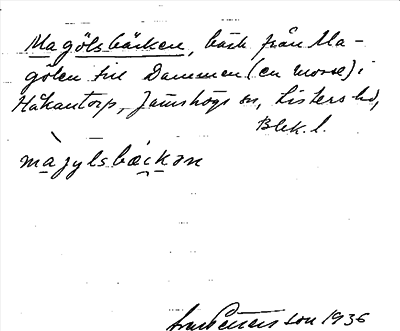 Magölsbäcken, bäck från Ma-
gölen till Dammen (en mosse) i
Håkantorp, Jämshögs sn, Listers hd,
Blek. l.
màjylsbäckən
Pettersson 1936